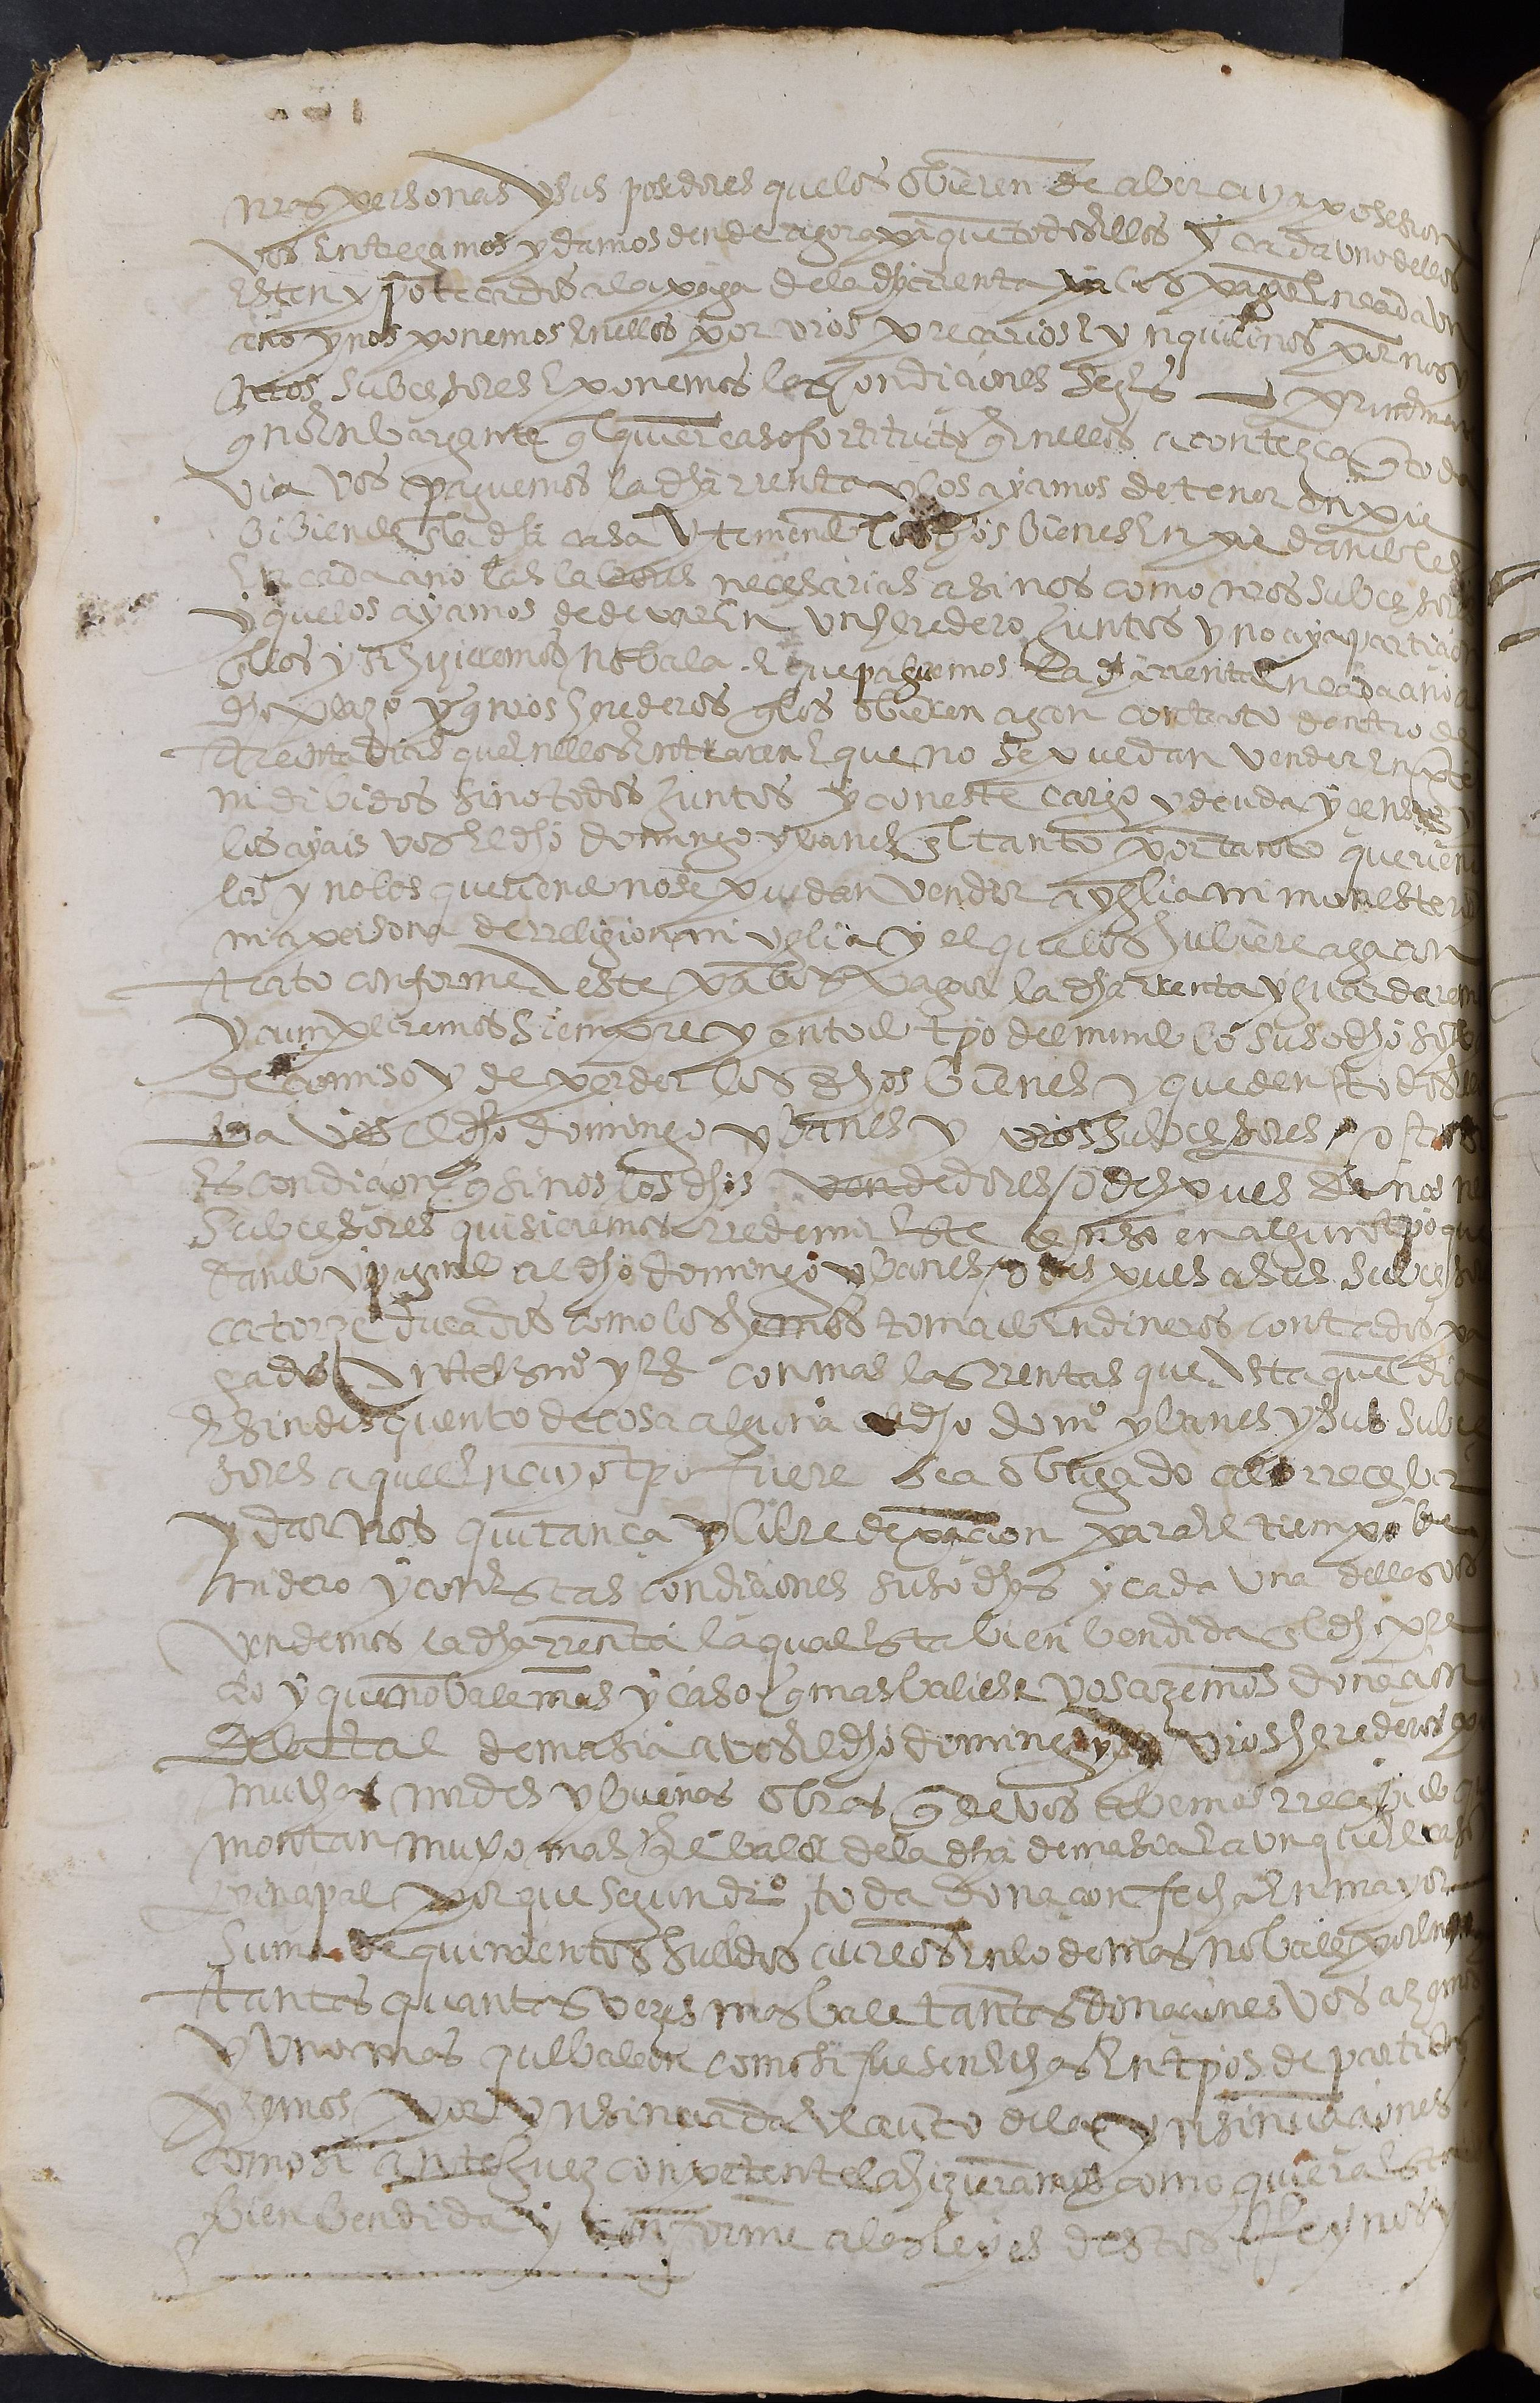 nras personas y sus posedores que los obieren de aber cuya posesion
vos entregamos y damos dende agora pa que todos ellos y cada uno dellos
esten ypotecados a la paga de la dha rrenta pa los pagar en cada un
año y nos ponemos en ellos por vros precarios e ynquilinos por nos y
nros subcesores e ponemos las condiciones sigs primera
q no enbargante qlquier caso fortituito q en ellos acontezca q toda
via vos paguemos la dha rrenta y los ayamos de tener en pie
bibiendo la dha casa y teniendo los dhos bienes en pie dandoles
en cada año las labores necesarias asi nos como nros subcesores
y que los ayamos de dexar en un heredero juntos y no aya particion
dellos y si hizieremos no bala e que paguemos la dha rrenta en cada año a
dho plazo y q nros herederos q los obieren agan contrato dentro de
treinta dias que en ellos entraren e que no se puedan vender en pte
ni dibidos sino todos juntos y con este cargo y deuda y censo y
los ayais vos el dho domingo ybanes el tanto por tanto queriendo
los y no los queriendo no se puedan vender a yglia ni monesterio
ni a persona de rreligion ni yglia y el que los hubiere aga con
trato conforme a este pa pagar la dha rrenta y guardaremos
y cumpliremos siempre y en todo tpo del mundo lo susodho so pena
de comiso y de perder los dhos bienes y queden todos
pa vos el dho domingo ybanes y vros subcesores otrosi
es condicion q si nos los dhos vendedores o despues de nos nros
subcesores quisieremos rredemir este censo en algun tpo que
dando y pagando al dho domingo ybanes o despues a sus subcesores
catorze ducados como los hemos tomado en dineros contados pa
gados con mas las rrentas que asta aquel dia
sin desquento de cosa alguna el dho domo ybanes y sus subce
sores a quel en cuyo tpo fuere sea obligado a lo rrecebir
y darnos quitança y libre depacion para el tiempo be
nidero y con estas condiciones susodhas y cada una dellas vos
vendemos la dha rrenta la qual esta bien bendida el dho pre
cio y que no bale mas y caso q mas baliese vos azemos donacion
de la tal demasia a vos el dho domingo y vros herederos por
muchas mrdes y buenas obras q de vos abemos rrecebido q
montan mucho mas q el balor de la dha demasia e aunque el caso
prinapal porque segun dro toda donacion fecha en mayor
suma de quinientos sueldos aureos en lo demas no bale por ende
tantas quantas vezes mas bale tantas donaciones vos azemos
y una mas q el balor como si fuesen hechas en tpos departidos
y hemos por ynsinuada el auto de las ynsinuaciones
como si ante juez conpetente la hizieramos como quiera esta
bien bendida y conforme a las leyes destos rreynos y